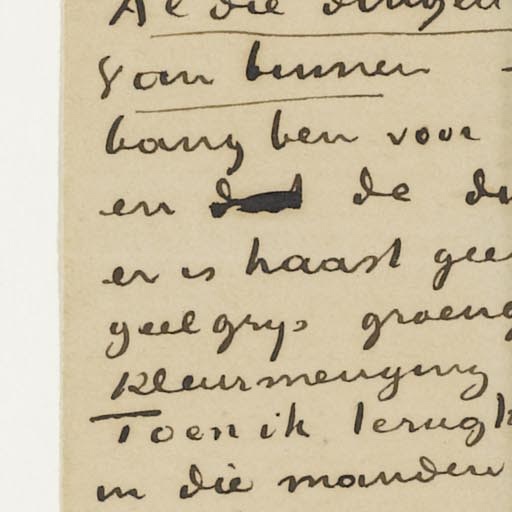 Al die dingen
van binnen
bang ben voor
en de
er is haast gee
geelgrys groeng
kleurmenging
Toen ik terugk
in die manden